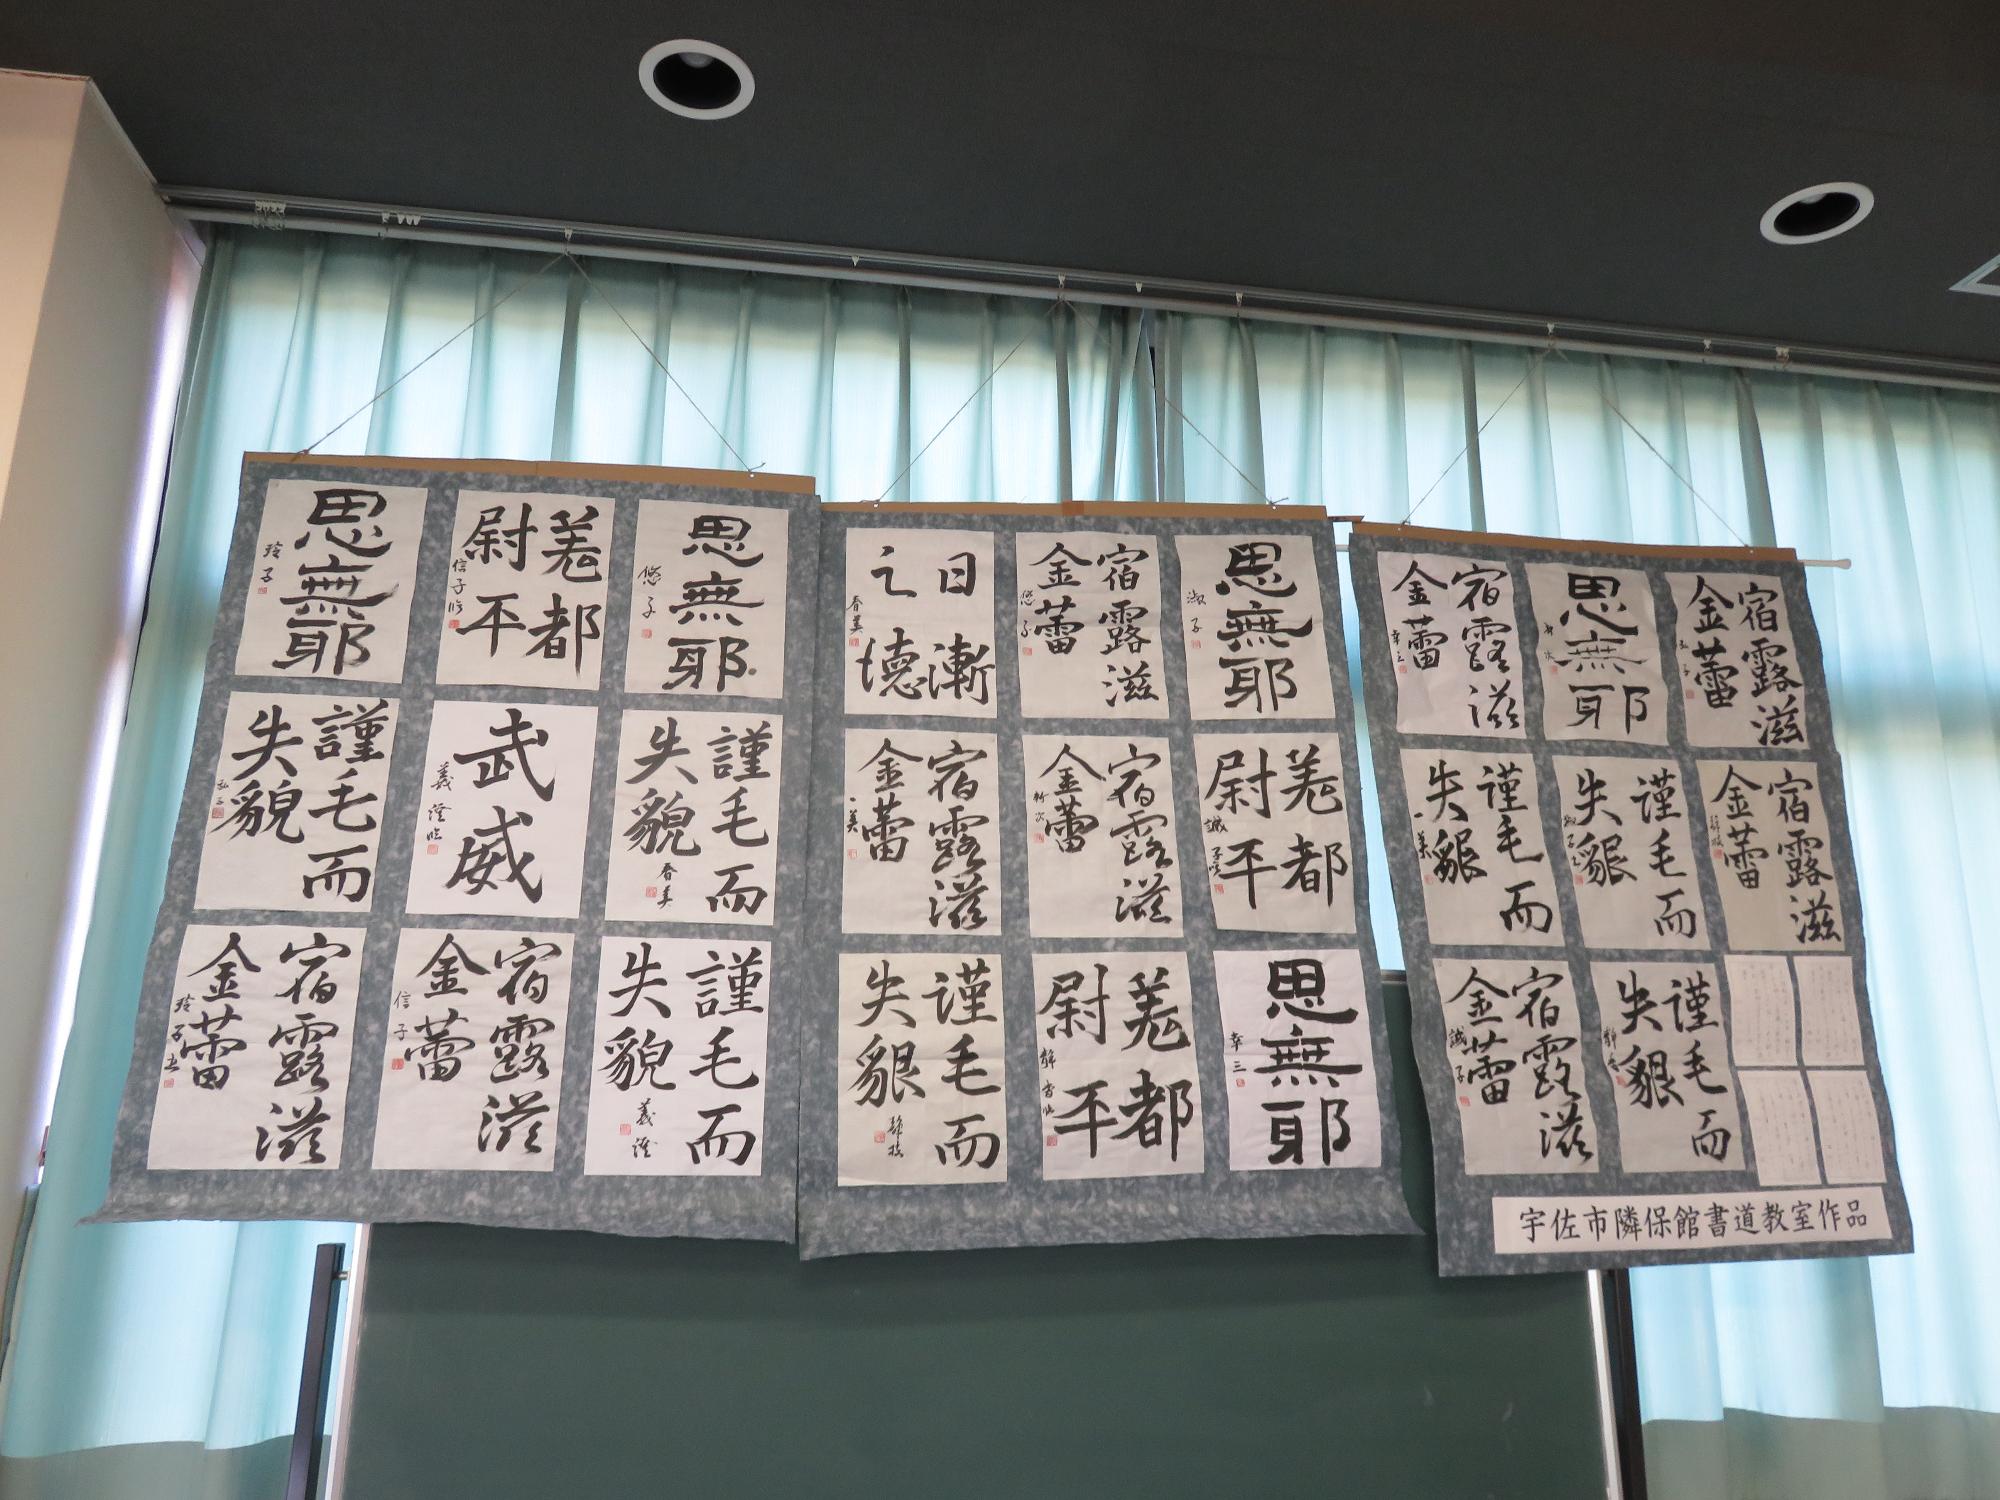 思無耶
玲子
羗都
尉平
信子臨
思無耶
悠子
謹毛而
失貌
弘子
武威
義澄臨
謹毛而
失貌
春美
宿露滋
金蕾
玲子書
宿露滋
金蕾
信子
謹毛而
失貌
義澄
日漸
之徳
春美
宿露滋
金蕾
悠子
思無耶
淑子
宿露滋
金蕾
一美
宿露滋
金蕾
羗都
尉平
誠子
謹毛而
失貌
静枝
羗都
尉平
思無耶
幸三
宿露滋
金蕾
思無耶
宿露滋
金蕾
弘子
謹毛而
失貌
一美
謹毛而
失貌
宿露滋
金蕾
静枝
宿露滋
金蕾
誠子
謹毛而
失貌
宇佐市隣保館書道教室作品